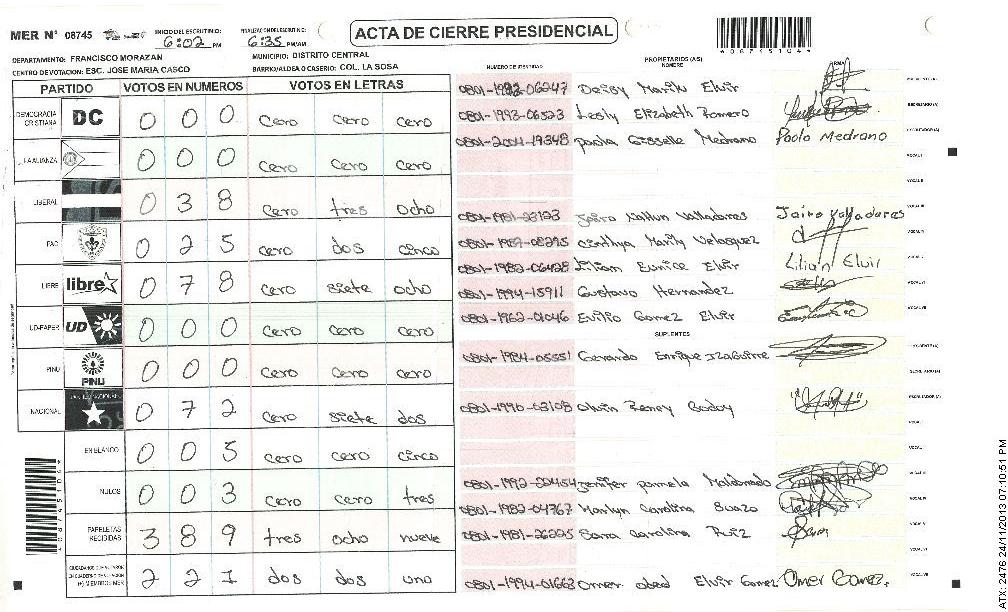 MER N° 08745
INICIO DEL ESCRUTINIO: 6:02 PM
FINALIZACION DEL ESCRUTINIO: 6:35 PM/AM
ACTA DE CIERRE PRESIDENCIAL
DEPARTAMENTO: FRANCISCO MORAZAN
MUNICIPIO: DISTRITO CENTRAL
CENTRO DE VOTACION: ESC. JOSE MARIA CASCO
BARRIO/ALDEA O CASERIO: COL. LA SOSA
PARTIDO VOTOS EN NUMEROS VOTOS EN LETRAS
DEMOCRACIA CRISTIANA DC 0 0 0 cero cero cero
LA ALIANZA 0 0 0 cero cero cero
LIBERAL 0 3 8 cero tres ocho
PAC 0 2 5 cero dos cinco
LIBRE libre 0 7 8 cero siete ocho
UD-FAPER UD 0 0 0 cero cero cero
PINU PINU 0 0 0 cero cero cero
NACIONAL 0 7 2 cero siete dos
EN BLANCO 0 0 5 cero cero cinco
NULOS 0 0 3 cero cero tres
PAPELETAS RECIBIDAS 3 8 9 tres ocho nueve
2 2 1 dos dos uno
NUMERO DE IDENTIDAD
PROPIETARIOS (AS)
NOMBRE
FIRMA
0801-1982-06247 Deisy Marilu Elvir
0801-1993-06523 Lesly Elizabeth Romero
0801-2001-19348 paola Gisselle Medrano Paola Medrano
0801-1981-23123 Jairo Valladares Jairo Valladares
0801-1987-08295 Cinthya Marily Velasquez
0801-1982-06428 Liliam Eunice Elvir Lilian Elvir
0801-1994-15911 Gustavo Hernandez
0801-1962-01046 Evilio Gomez Elvir
SUPLENTES
0801-1984-05551 Gerardo Enrique Izaguirre
0801-1996-03108 Reney Godoy
Jenifer pamela Maldonado
0801-1982-04767 Marlyn Carolina Suazo
0801-1981-26205 Sara Carolina Ruiz Sara
0801-1994-01663 Omer obed Elvir Gomez Omer Gomez.
ATX: 2476 24/11/2013 07:10:51 PM